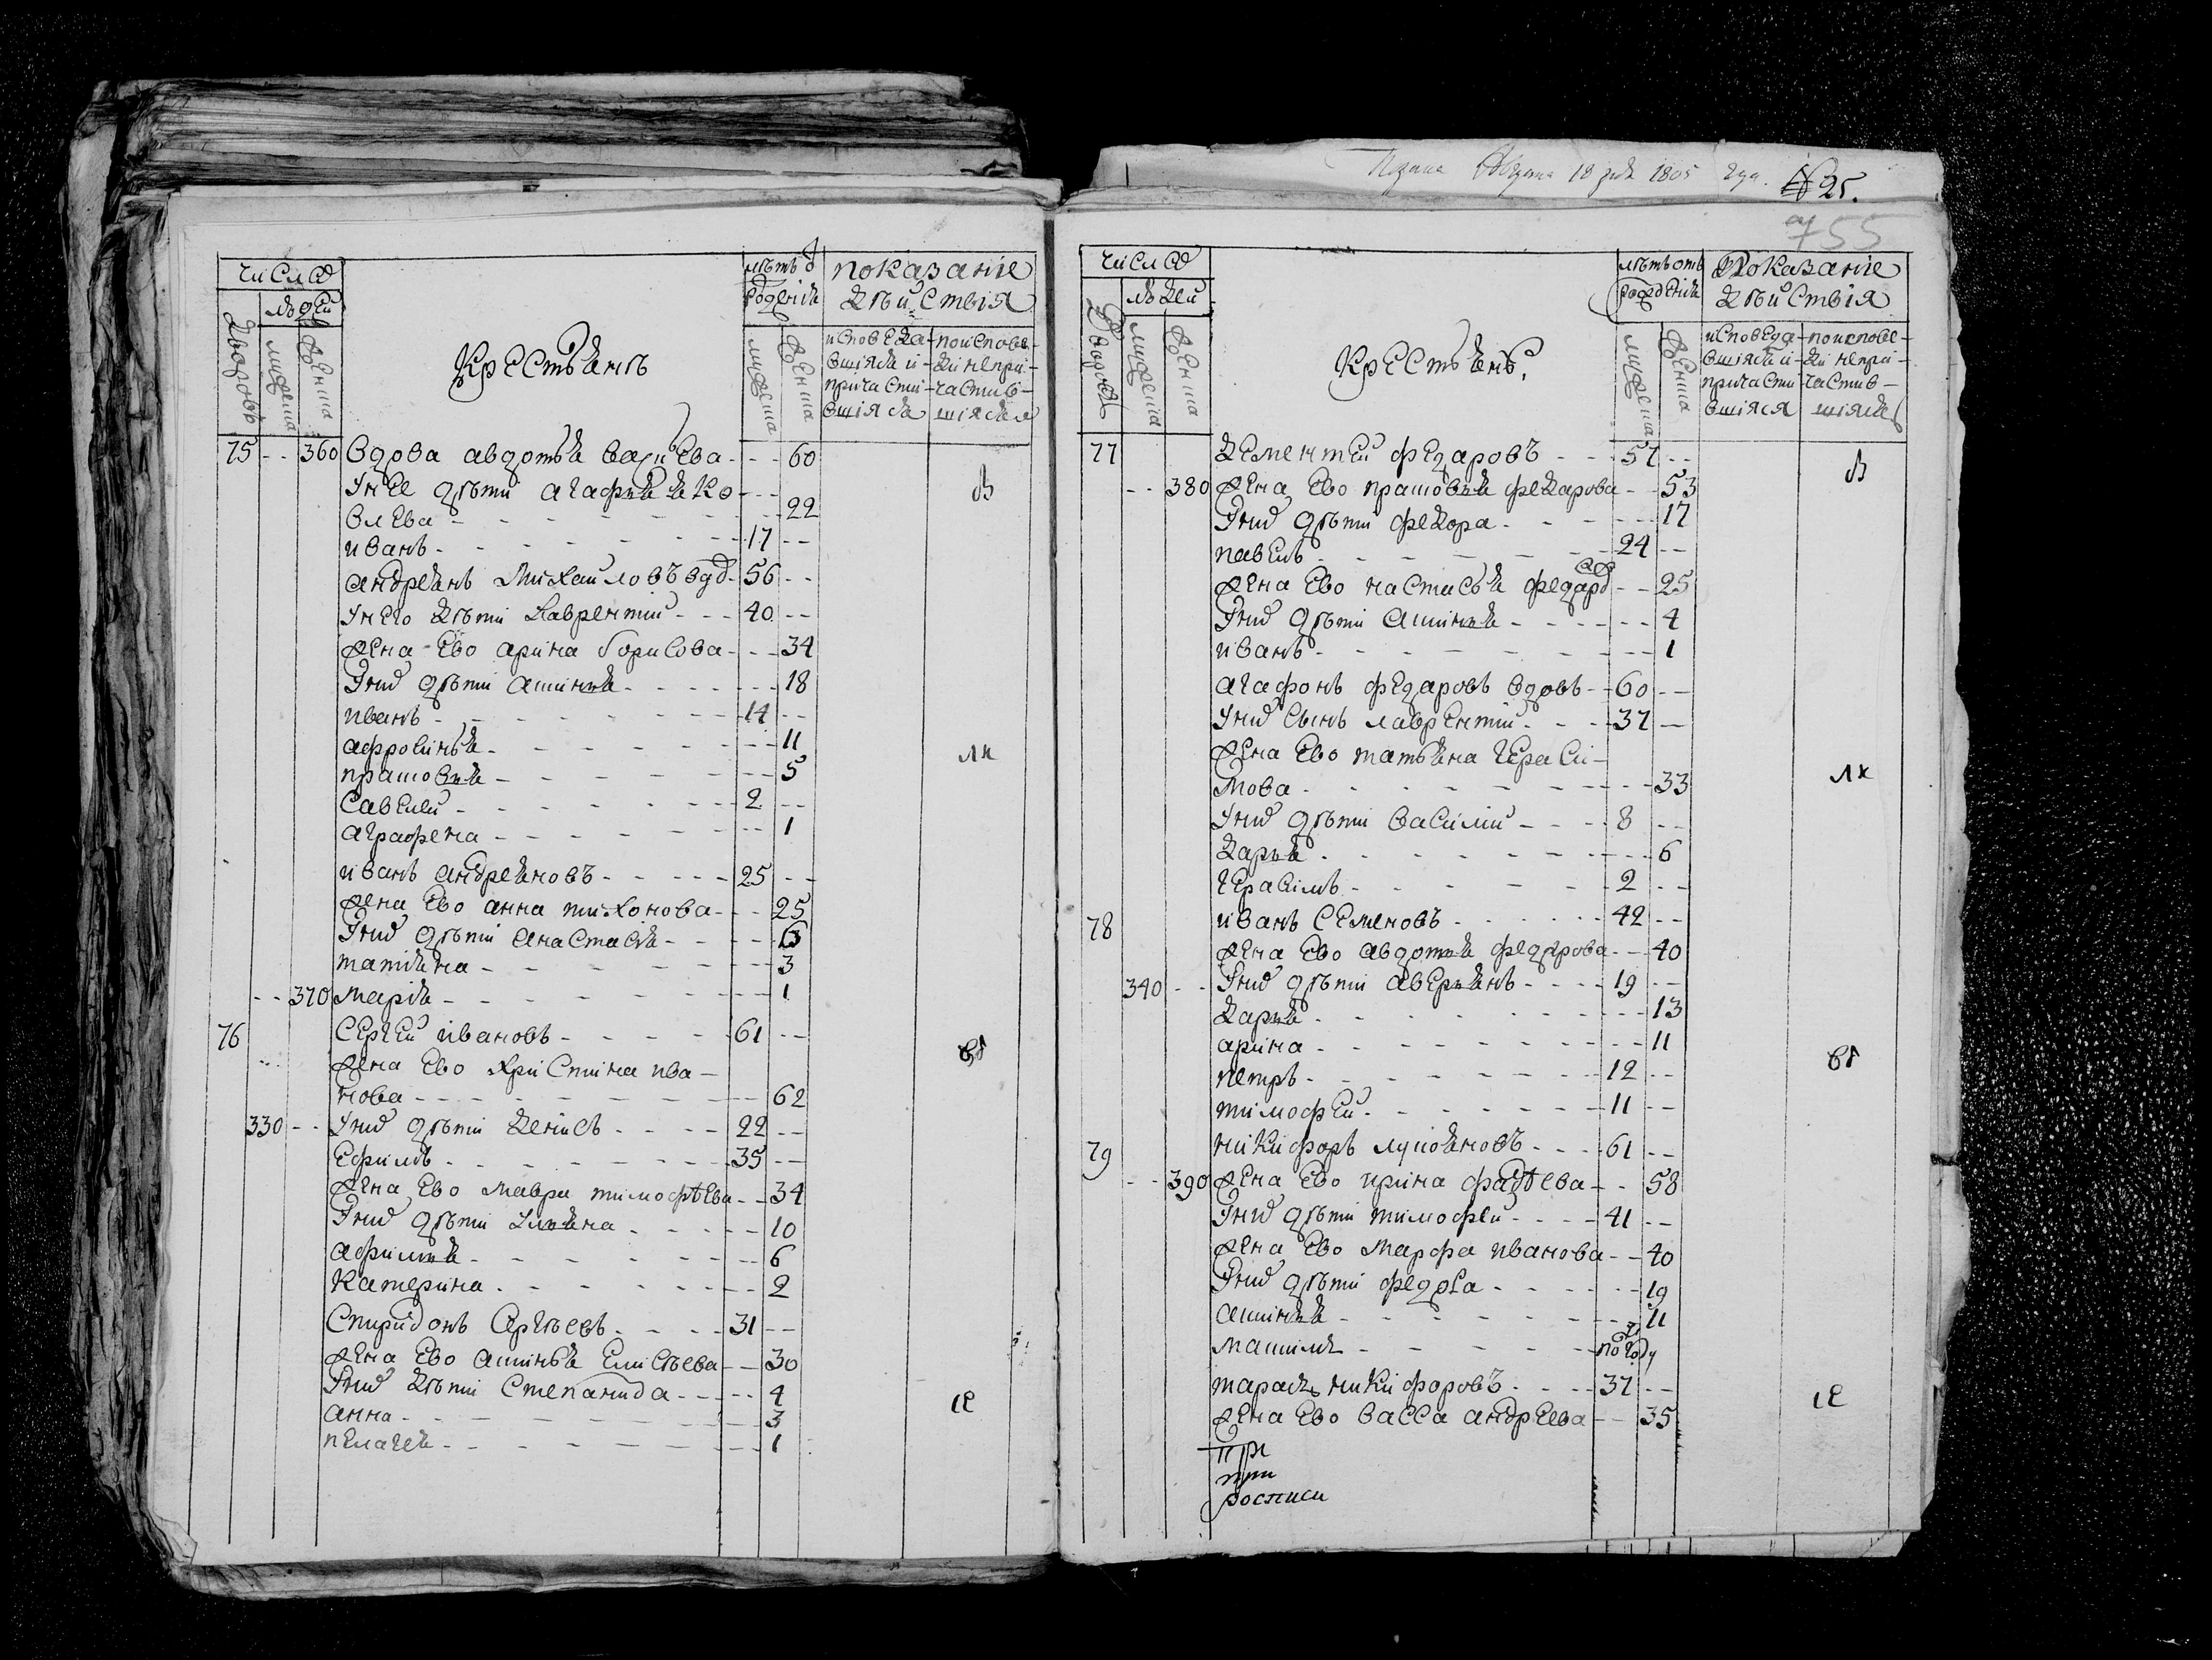 число
людей
дворовъ
мужеска
женска
крестьянъ
лѣтъ от
рождения
мужеска
женска
показание
дѣйствия
исповеда-
вшияся и
причасти-
вшияся
поисповѣ-
ди непри-
частив-
шияся
75 - - 360 вдова авдотья васильева - - - 60
У нее дѣти агафья яко-
влева - - - 22
иванъ - - - 17 - -
андреянъ михаиловъ вдо - 56 - -
У него дѣти лаврентии - - - 40 - -
жена ево арина борисова - - - 34
У них дѣти аксинья - - - 18
иванъ - - - 14 - -
афросинья - - - 11
прасковья - - - 5
савелеи - - - 2 - -
аграфена - - - 1
иванъ андреяновъ - - - 25 - -
жена ево анна тихонова - - - 25
У них дѣти анастасья - - -
татияна - - - 3
- - 370 мария - - - 1
76 сергеи ивановъ - - - 61 - -
жена ево христина ива-
нова - - - 62
330 - - У них дѣти денисъ - - - 22 - -
ефимъ - - - 35 - -
жена ево мавра тимофѣева - - 34
У них дѣти ульяна - - - 10
афимья - - - 6
катерина - - - 2
спиридонъ сергѣевъ - - - 31 - -
жена ево аксинья елисѣева - - 30
У них дѣти степанида - - - 4
анна - - - 3
пелагея - - - 1
въ
лк
вг
іе
1805 года. № 25.
755
число
людеи
дворовъ
мужеска
женска
крестьянъ.
лѣтъ отъ
рождения
мужеска
женска
показание
дѣйствия
исповеда-
вшияся и
причасти-
вшияся
поисповѣ-
ди непри-
частив-
шияся
77 дементеи федаровъ - - - 57 - -
- - 380 жена ево прасковья федарова - - 53
У них дѣти федора - - - 17
павелъ - - - 24 - -
жена ево настасья федаро - - 25
У них дѣти аксинья - - - 4
иванъ - - - 1
агафонъ федаровъ вдовъ - - 60 - -
У них сынъ лаврентии - - - 37 - -
жена ево татьяна гераси-
мова - - - 33
У них дѣти василии - - - 8 - -
дарья - - - 6
герасимъ - - - 2 - -
78 иванъ семеновъ - - - 42 - -
жена ево авдотья федарова - - 40
340 - - У них дѣти аверьянъ - - - 19 - -
дарья - - - 13
арина - - - 11
петръ - - - 12 - -
тимофеи - - - 11 - -
79 никифоръ лукьяновъ - - - 61 - -
- - 390 жена ево ирина фадѣева - - 58
У них дѣти тимофеи - - - 41 - -
жена ево марфа иванова - - 40
У них дѣти федора - - - 19
аксинья - - - 11
максимъ - - - по году
тарасъ никифоровъ - - - 37 - -
жена ево васса андреева - - 35
при
тои
росписи
въ
лк
вг
іе